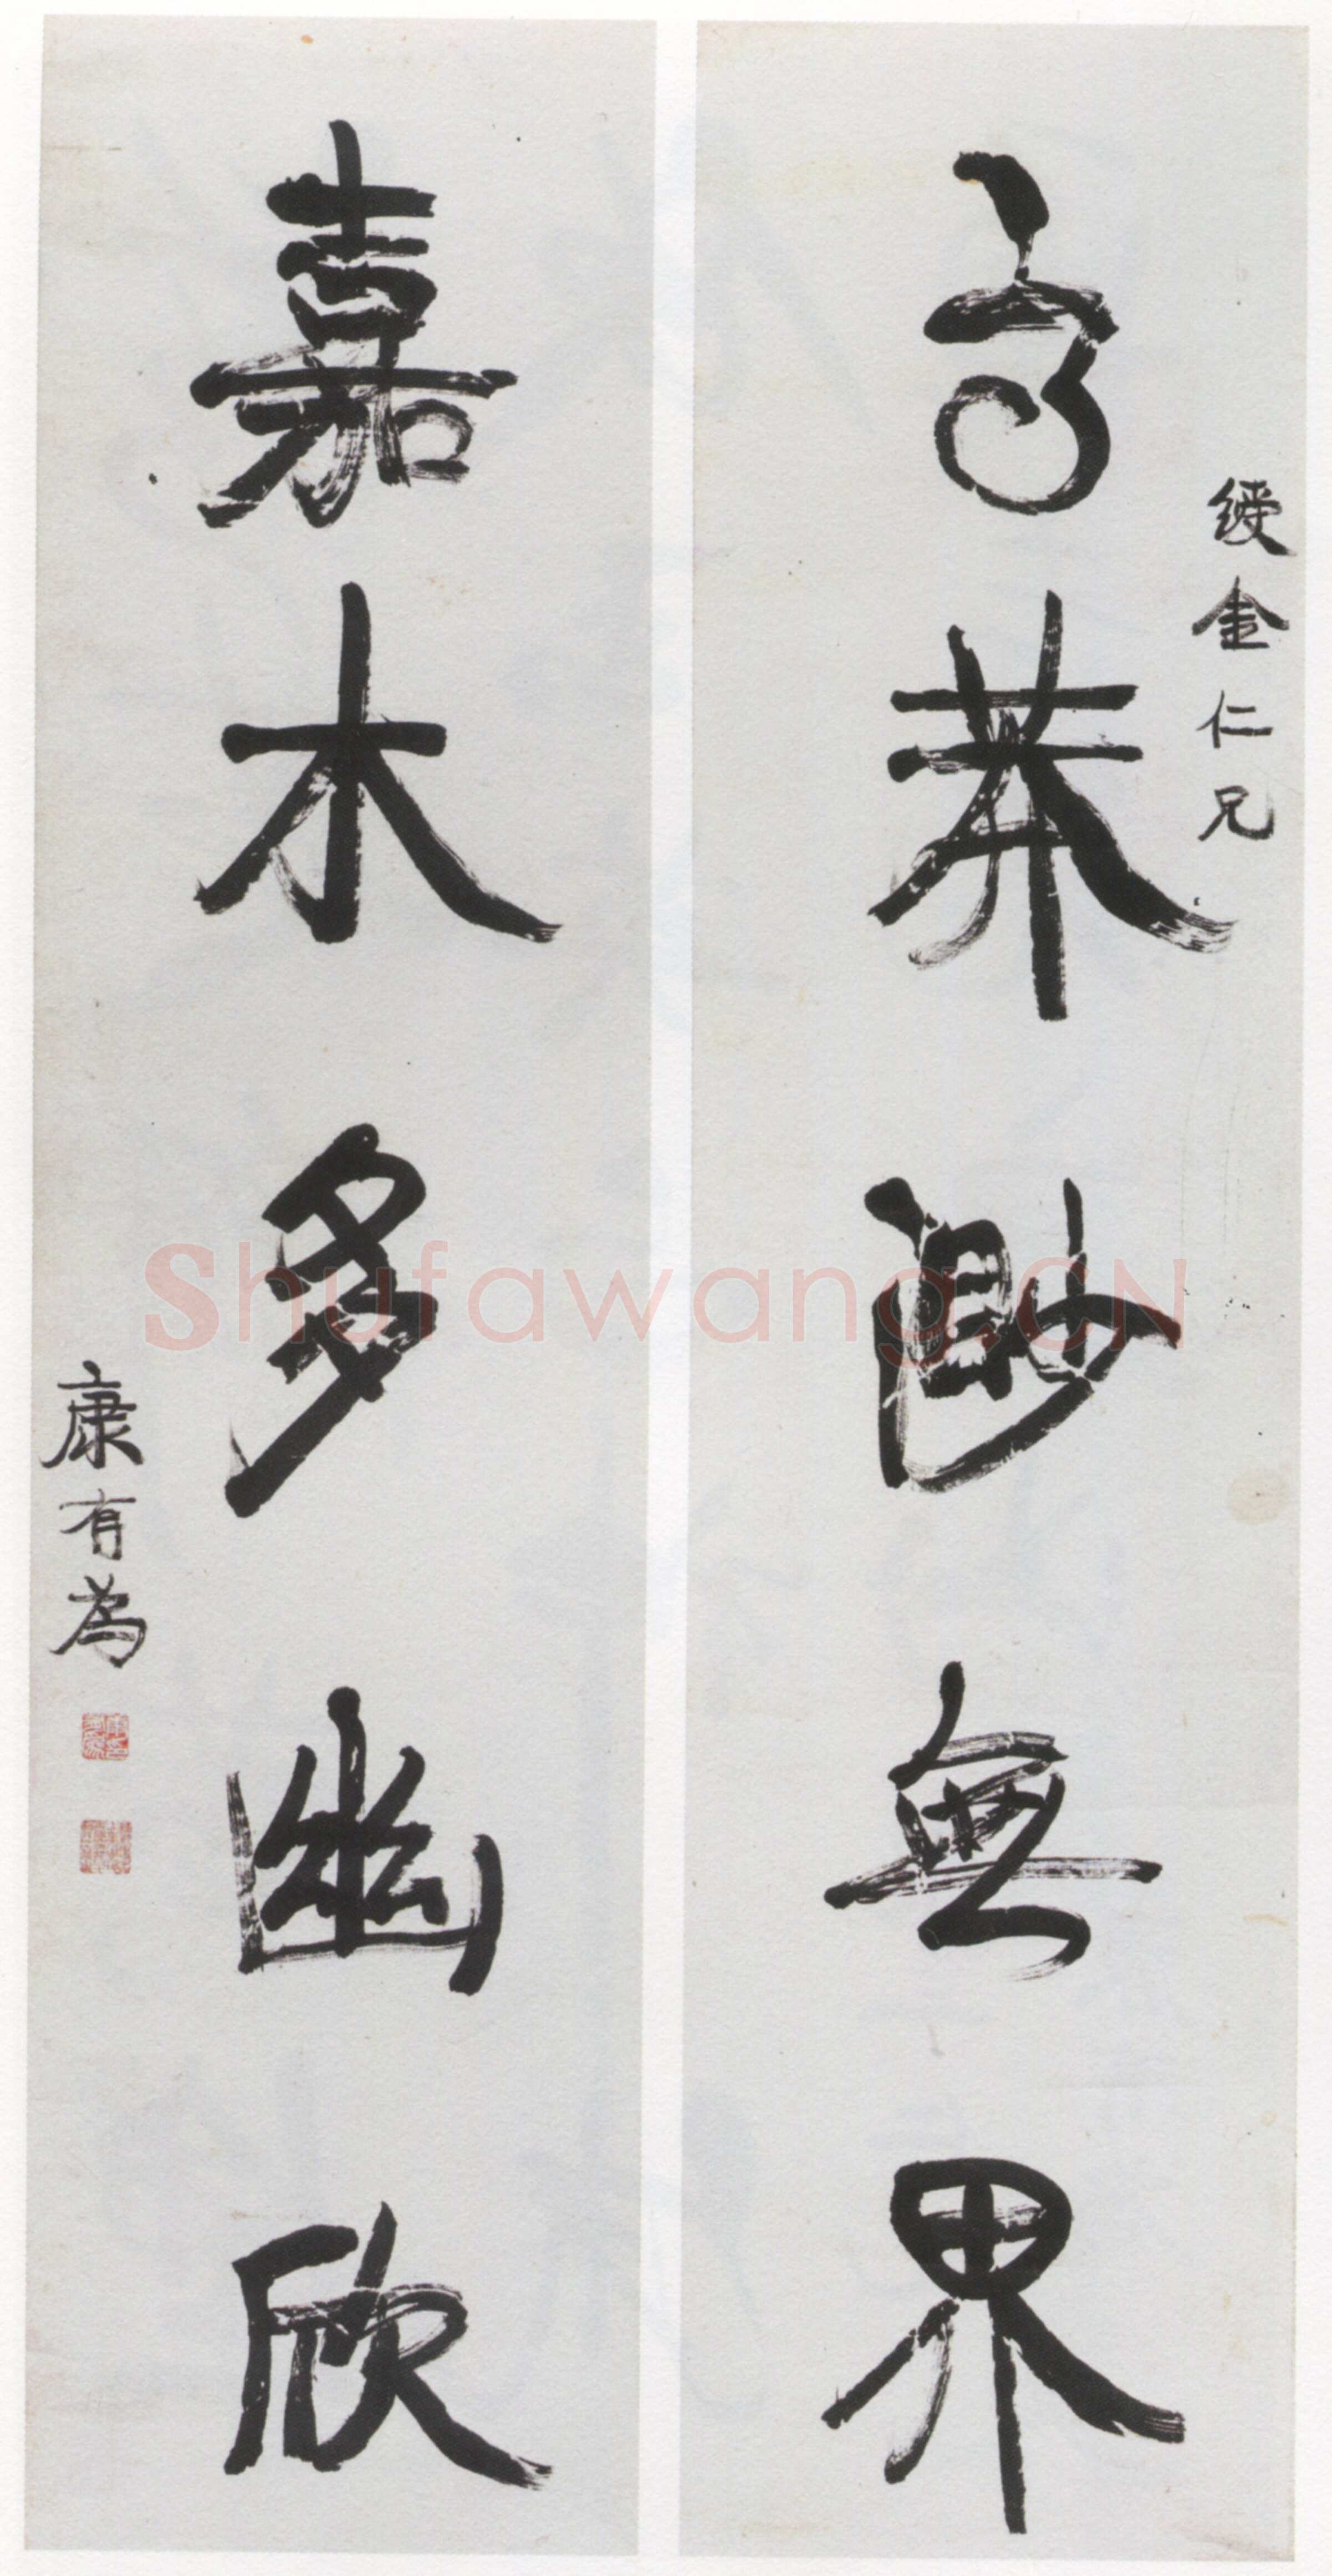 綬金仁兄
高莽渺無界
嘉木多幽欣
康有為
Shufawang.CN